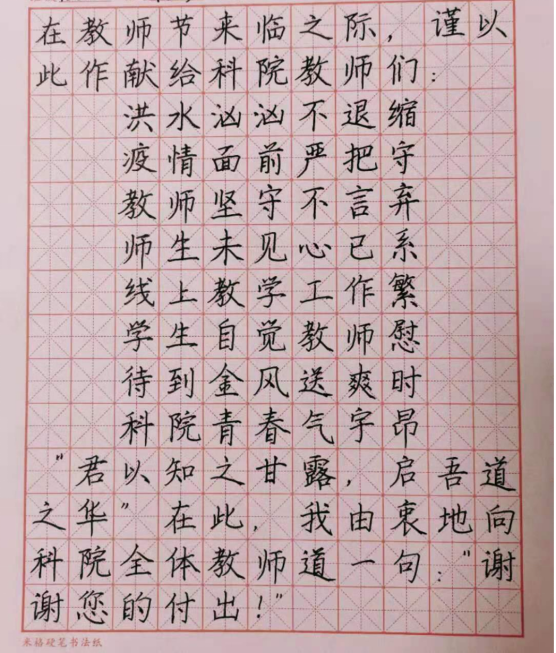 在教师节来临之际，谨以
此作献给科院教师们：
洪水汹汹不退缩
疫情面前严把守
教师坚守不言弃
师生未见心已系
线上教学工作繁
学生自觉教师慰
待到金风送爽时
科院青春气宇昂
“君以知之甘露，启吾道
之华”在此，我由衷地向
科院全体教师道一句：“谢
谢您的付出！”
米格硬笔书法纸